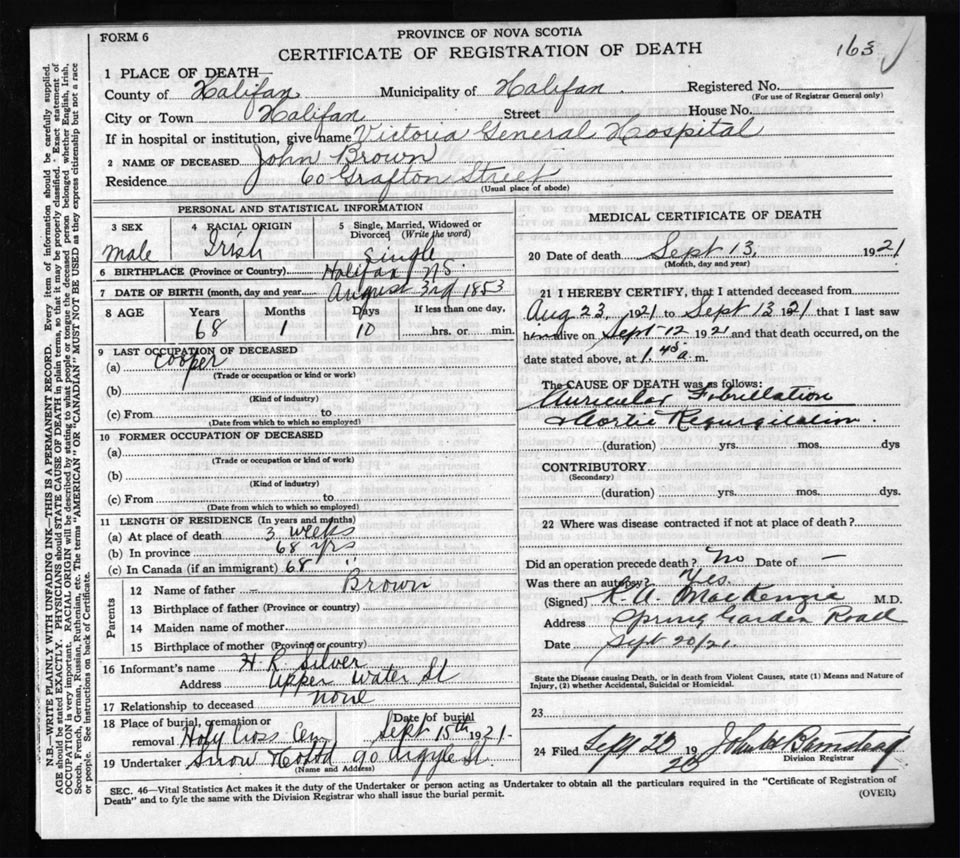 FORM 6
PROVINCE OF NOVA SCOTIA
CERTIFICATE OF REGISTRATION OF DEATH
163
1 PLACE OF DEATH—
County of Halifax Municipality of Halifax. Registered No.
(For use of Registrar General only)
City or Town Halifax Street House No.
If in hospital or institution, give name Victoria General Hospital
2 NAME OF DECEASED John Brown
Residence 60 Grafton Street
(Usual place of abode)
PERSONAL AND STATISTICAL INFORMATION
3 SEX 4 RACIAL ORIGIN 5 Single, Married, Widowed or Divorced (Write the word)
Male Irish Single
6 BIRTHPLACE (Province or Country) Halifax NS.
7 DATE OF BIRTH (month, day and year) August 3rd 1853
8 AGE Years Months Days If less than one day,
68 1 10 hrs. or min.
9 LAST OCCUPATION OF DECEASED
(a) Cooper
(Trade or occupation or kind or work)
(b)
(Kind of industry)
(c) From to
(Date from which to which so employed)
10 FORMER OCCUPATION OF DECEASED
(a)
(Trade or occupation or kind of work)
(b)
(Kind of industry)
(c) From to
(Date from which to which so employed)
11 LENGTH OF RESIDENCE (In years and months)
(a) At place of death 3 weeks
(b) In province 68 yrs
(c) In Canada (if an immigrant) 68 "
Parents
12 Name of father – Brown
13 Birthplace of father (Province or country)
14 Maiden name of mother
15 Birthplace of mother (Province or country)
16 Informant's name H. R. Silver
Address Upper Water St
17 Relationship to deceased none
18 Place of burial, cremation or removal Holy Cross Cem Date of burial Sept 15th 1921.
19 Undertaker Snow 90 Argyle St.
(Name and Address)
MEDICAL CERTIFICATE OF DEATH
20 Date of death Sept 13, 1921
(Month, day and year)
21 I HEREBY CERTIFY, that I attended deceased from
Aug 23, 1921 to Sept 13 1921 that I last saw
him alive on Sept 12 1921 and that death occurred, on the
date stated above, at 1.45 a. m.
The CAUSE OF DEATH was as follows:
Auricular Fibrillation
& Aortic Regurgitation.
(duration) yrs. mos. dys
CONTRIBUTORY
(Secondary)
(duration) yrs. mos. dys.
22 Where was disease contracted if not at place of death?
Did an operation precede death? No Date of –
Was there an autopsy? Yes.
(Signed) K. A. MacKenzie M.D.
Address Spring Garden Road
Date Sept 20/21.
State the Disease causing Death, or in death from Violent Causes, state (1) Means and Nature of
Injury, (2) whether Accidental, Suicidal or Homicidal.
23
24 Filed Sept 19
Division Registrar
SEC. 46—Vital Statistics Act makes it the duty of the Undertaker or person acting as Undertaker to obtain all the particulars required in the "Certificate of Registration of
Death" and to fyle the same with the Division Registrar who shall issue the burial permit.
(OVER)
N.B.—WRITE PLAINLY WITH UNFADING INK—THIS IS A PERMANENT RECORD. Every item of information should be carefully supplied.
AGE should be stated EXACTLY. PHYSICIANS should STATE CAUSE OF DEATH in plain terms, so that it may be properly classified. Exact statement of
OCCUPATION is very important. RACIAL ORIGIN will be described by stating to what people or tongue the deceased person belonged whether English, Irish,
Scotch, French, German, Russian, Ruthenian, etc. The terms "AMERICAN" OR "CANADIAN" MUST NOT BE USED as they express citizenship but not a race
or people. See instructions on back of Certificate.